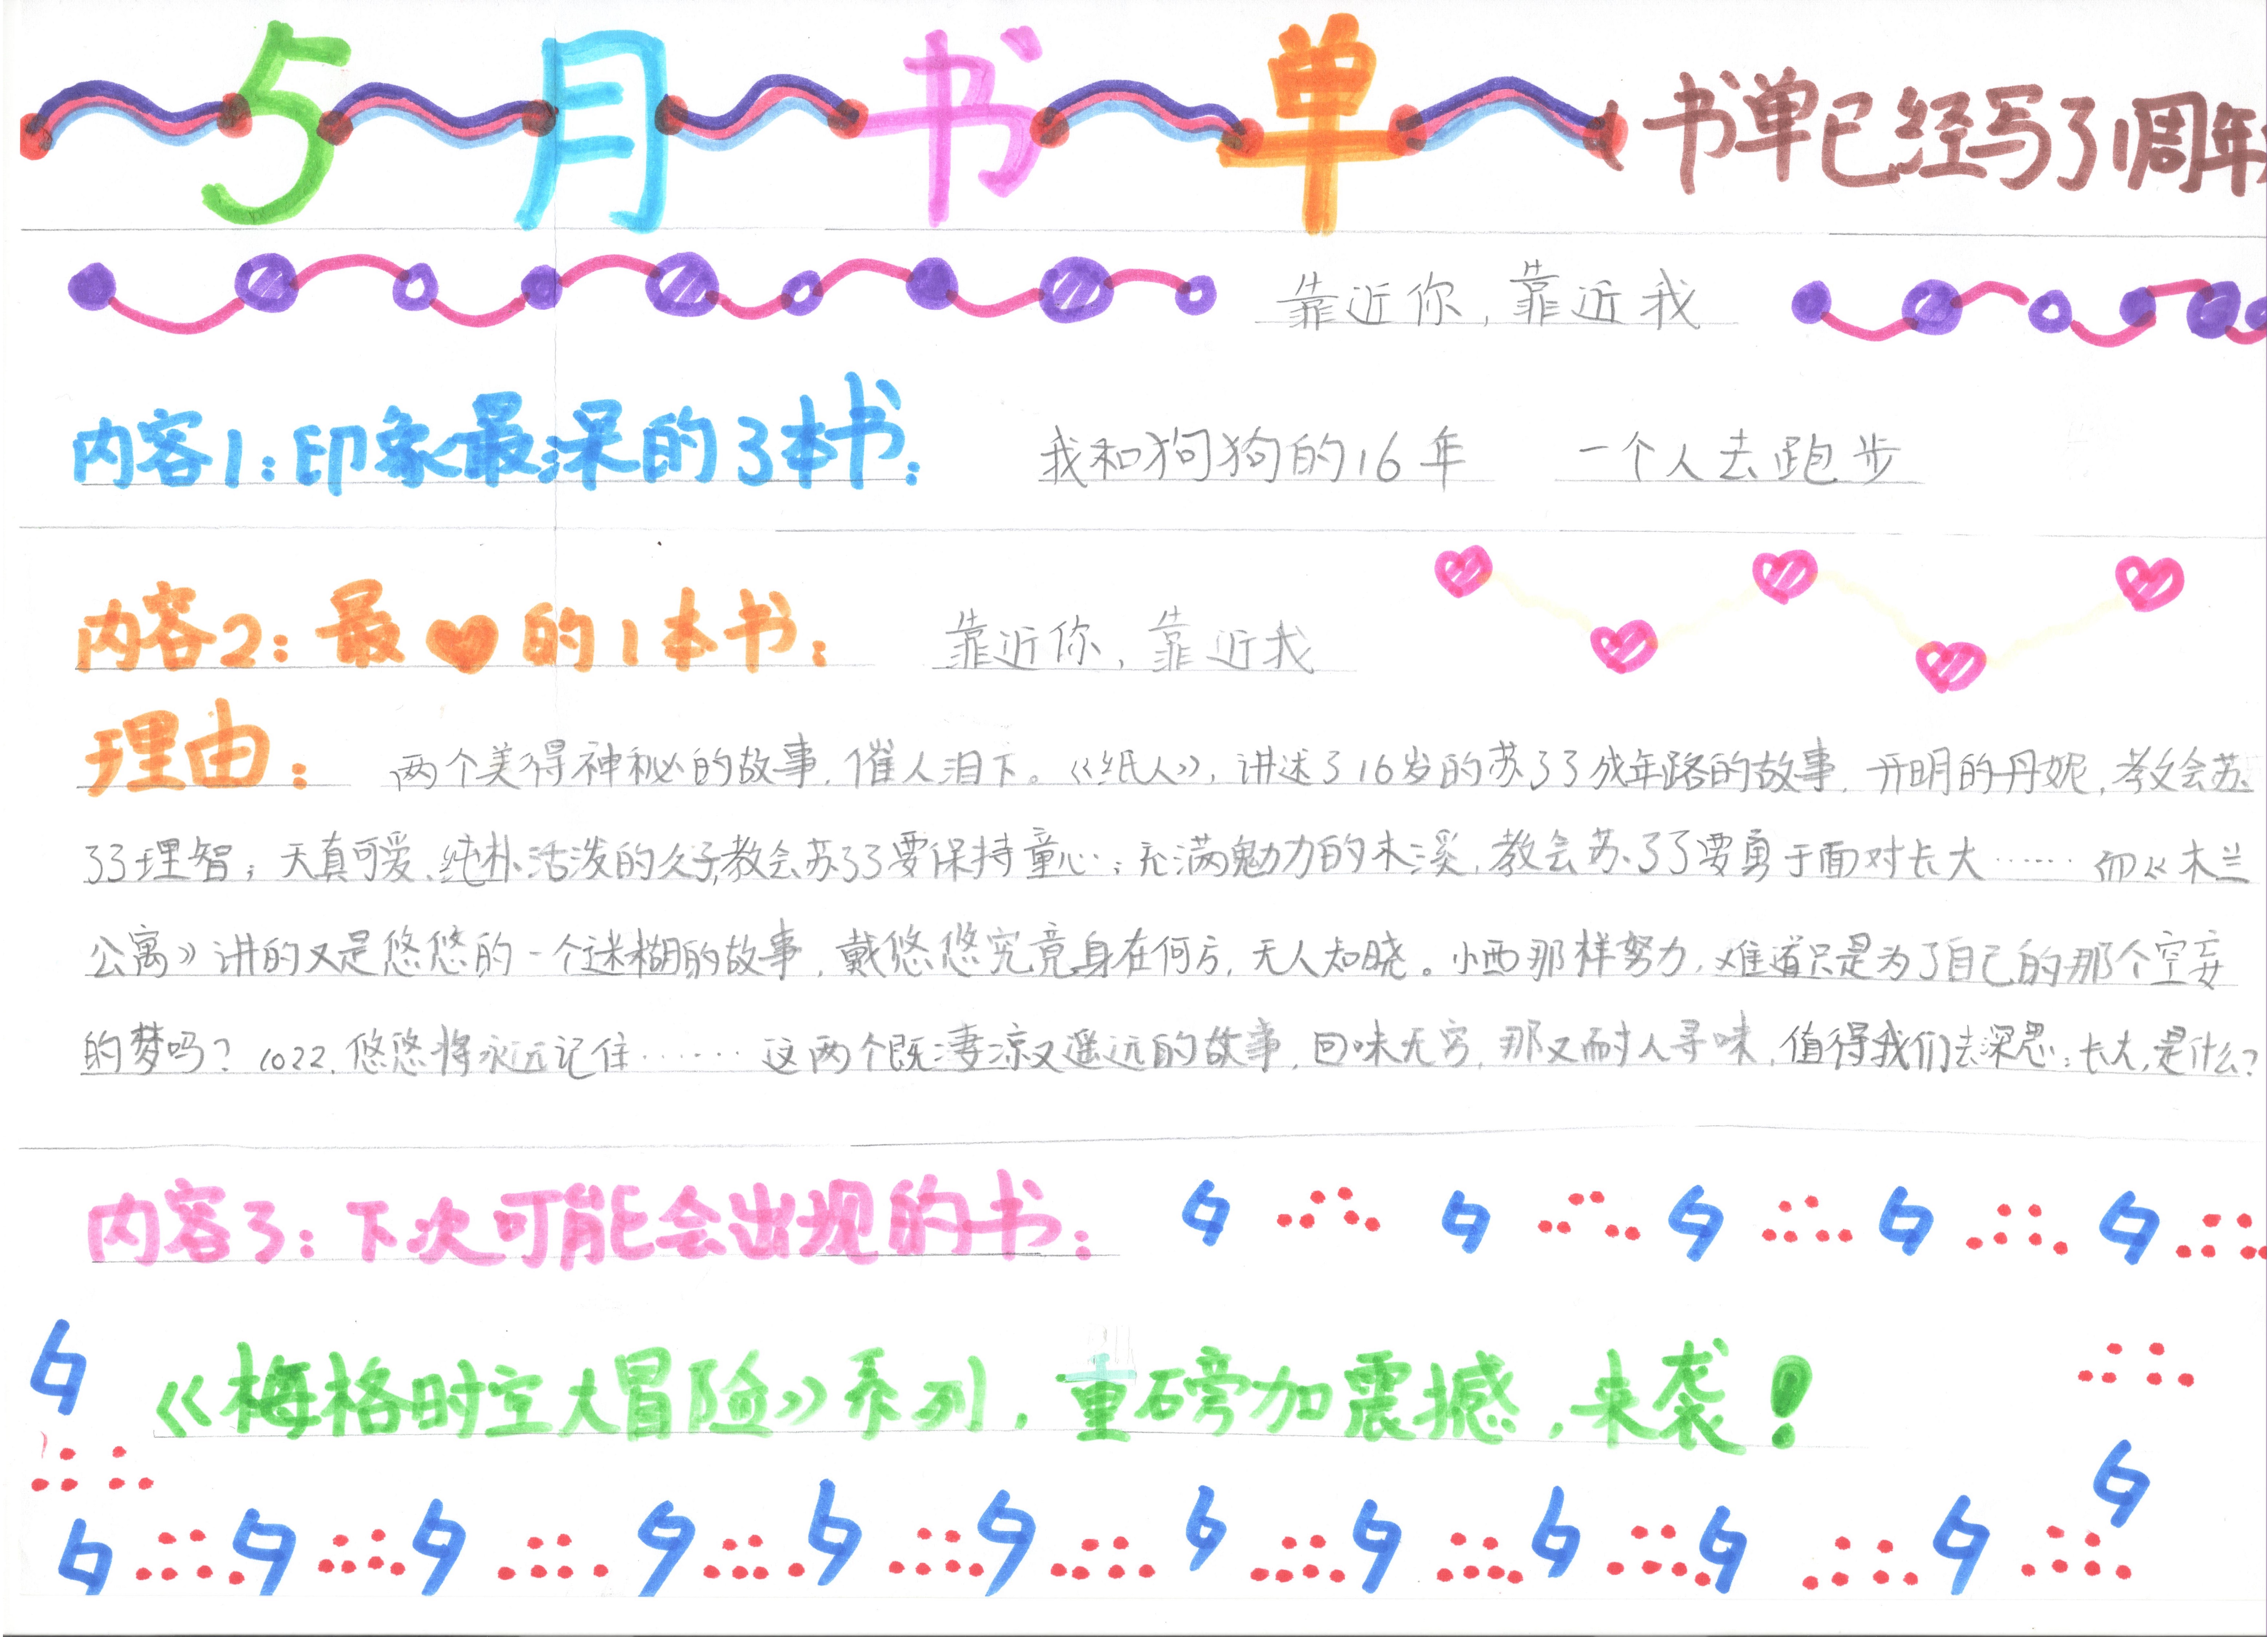 5月书单 书单已经写了1周年
靠近你，靠近我
内容1：印象最深的3本书： 我和狗狗的16年 一个人去跑步
内容2：最♥的1本书： 靠近你，靠近我
理由： 两个美得神秘的故事，催人泪下。《纸人》，讲述了16岁的苏了了成年路的故事，开明的丹妮，教会苏
了了理智；天真可爱、纯朴活泼的久子，教会苏了了要保持童心；充满魅力的木溪，教会苏了了要勇于面对长大……而《木兰
公寓》讲的又是悠悠的一个迷糊的故事，戴悠悠究竟身在何方，无人知晓。小西那样努力，难道只是为了自己的那个空妄
的梦吗？1022，悠悠将永远记住……这两个既凄凉又遥远的故事，回味无穷，那又耐人寻味，值得我们去深思：长大，是什么？
内容3：下次可能会出现的书：
《梅格时空大冒险》系列，重磅加震撼，来袭！